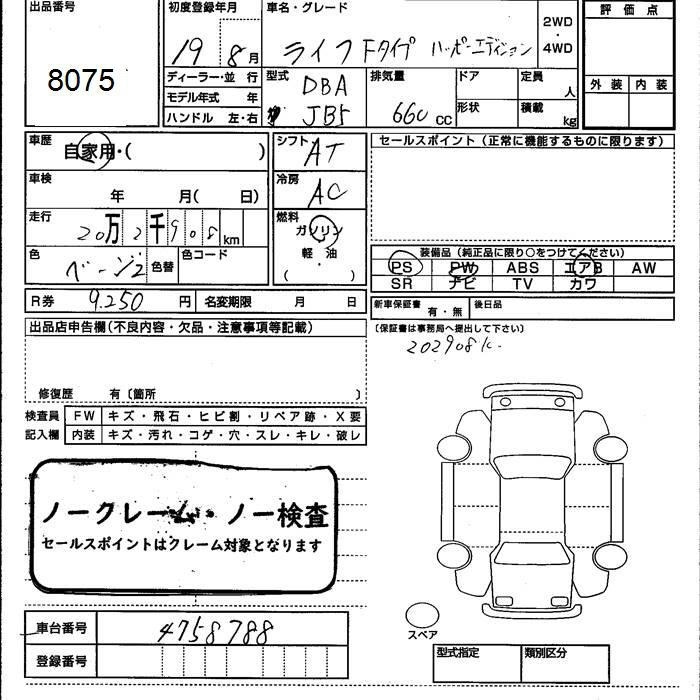 出品番号
8075
初度登録年月
19 8月
車名・グレード
ライフ Fタイプ ハッピーエディション
2WD
・
4WD
評価点
外装 内装
ディーラー・並行
モデル年式 年
ハンドル 左・右
型式
DBA
JB5
排気量
660 cc
ドア
形状
定員
人
積載
kg
車歴
自家用・( )
車検
年 月( 日)
走行
20万2千908km
色
ベージュ
色替
色コード
シフト
AT
冷房
AC
燃料
ガソリン
軽・油
( ・ )
セールスポイント(正常に機能するものに限ります)
装備品(純正品に限り○をつけてください)
PS PW ABS エアB AW
SR ナビ TV カワ
R券 9.250 円
名変期限 月 日
新車保証書 有・無
後日品
(保証書は事務局へ提出して下さい)
202908K.
出品店申告欄(不良内容・欠品・注意事項等記載)
修復歴 有〔箇所 〕
検査員 FW キズ・飛石・ヒビ割・リペア跡・X要
記入欄 内装 キズ・汚れ・コゲ・穴・スレ・キレ・破レ
ノークレーム・ノー検査
セールスポイントはクレーム対象となります
スペア
車台番号 4758788
登録番号
型式指定
類別区分